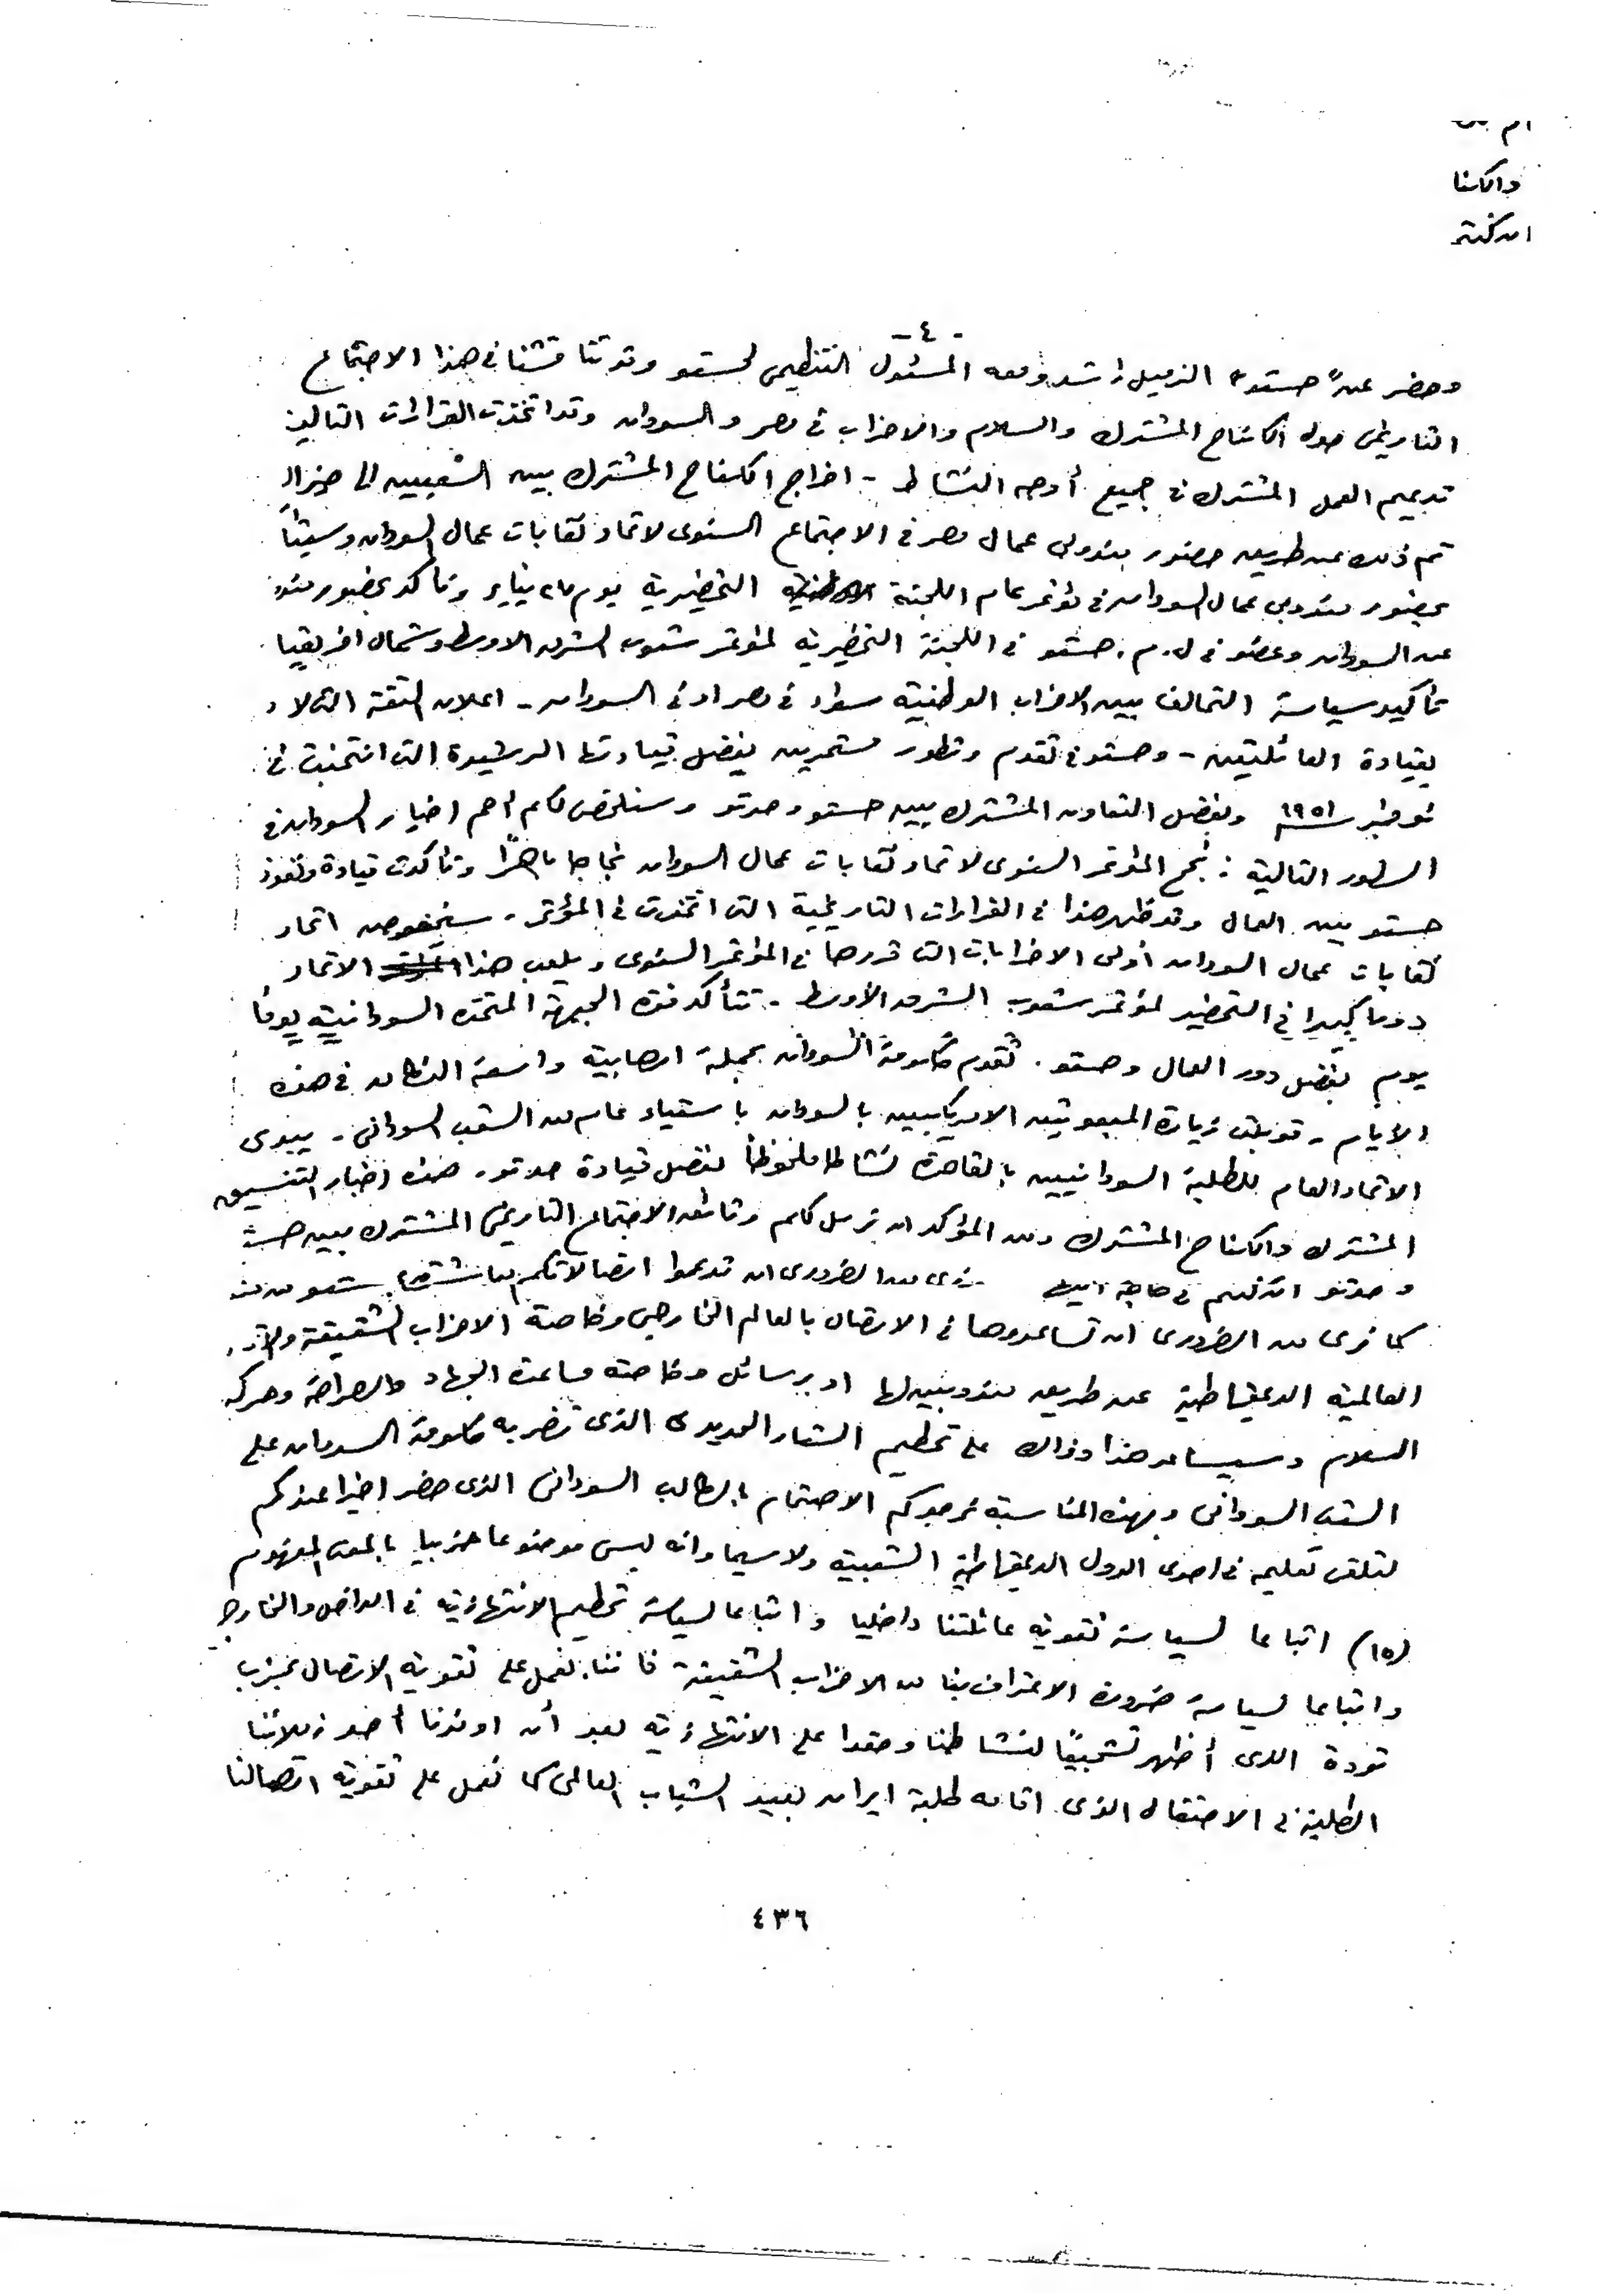 والكفا
- ٤ -
وحضر عن "حستو" الزميل راشد ومعه المسئول التنظيمى لحستو وقد تناقشنا فى هذا الاجتماع
التاريخى حول الكفاح المشترك والسلام والاحزاب فى مصر والسودان وقد اتخذت القرارات التالية
تدعيم العمل المشترك فى جميع أوجه النشاط - اخراج الكفاح المشترك بين الشعبين الى حيز
تم ذلك عن طريق حضور مندوبى عمال مصر فى الاجتماع السنوى لاتحاد نقابات عمال السودان وسيتأ
بحضور مندوبى عمال السودان فى مؤتمر عام اللجنة التحضيرية يوم يناير وتأكد بحضور مندو
عن السودان وعضو فى ل. م. حستو فى اللجنة التحضيرية لمؤتمر شعوب الشرق الاوسط وشمال افريقيا
تأكيد سياسة التحالف بين الاحزاب الوطنية سواء فى مصر او فى السودان - اعلان الثقة
بقيادة العائلتين - وحستو فى تقدم وتطور مستمرين بفضل قيادتها الرشيدة التى انتخبت فى
نوفمبر ١٩٥١ وبفضل التعاون المشترك بين حستو وحدتو وسنلخص لكم اهم اخبار السودان فى
السطور التالية : نجح المؤتمر السنوى لاتحاد نقابات عمال السودان نجاحا باهرًا وتأكدت قيادة ونفوذ
حستو بين العمال وقد ظهر هذا فى القرارات التاريخية التى اتخذت فى المؤتمر - اتحاد
نقابات عمال السودان اولى الاضرابات التى قررها فى المؤتمر السنوى ويلعب هذا الاتحاد
دورا كبيرا فى التحضير لمؤتمر شعوب الشرق الأوسط - تتأكد قوة الجبهة المتحدة السودانية يومًا
بيوم بفضل دور العمال وحستو . تقوم حكومة السودان بحملة ارهابية واسعة النطاق فى هذه
الأيام - قوبلت زيارة المبعوثين الامريكيين بالسودان باستياء عام من الشعب السودانى - يبدى
الاتحاد العام للطلبة السودانيين بالقاهرة نشاطا ملحوظًا بفضل قيادة حدتو . هذه اخبار التنسيق
المشترك والكفاح المشترك ومن المؤكد ان نرسل لكم وثائق الاجتماع التاريخى المشترك بين حستو
وحدتو فى حاجة نرى من الضرورى ان تدعموا اتصالاتكم
كما نرى من الضرورى ان تساعدوها فى الاتصال بالعالم الخارجى وخاصة الاحزاب الشقيقة
العالمية الديمقراطية عن طريق مندوبيها او برسائل وخاصة مساعدة الجهاد والصراحة وحركة
السلام وسيساعد هذا وذاك على تحطيم الستار الحديدى الذى تضربه حكومة السودان على
الشعب السودانى وبهذه المناسبة نرجوكم الاهتمام بالطالب السودانى الذى حضر اخيرا عندكم
لتلقى تعليمه فى احدى الدول الديمقراطية الشعبية ولا سيما وانه ليس موضوعا حزبيا بالمعنى المفهوم
(١٥) اتباعا لسياسة تقوية عائلتنا داخليا واتباعا لسياسة تحطيم الانتهازية فى الداخل والخارج
واتباعا لسياسة ضرورة الاعتراف بنا من الاحزاب الشقيقة فاننا نعمل على تقوية الاتصال بحزب
تودة الذى أظهر تشجيعًا لنشاطنا وحقدا على الانتهازية بعد أن اوفدنا أحد زملائنا
الطلبة فى الاحتفال الذى اقامه طلبة ايران بعيد الشباب العالمى كما نعمل على تقوية اتصالنا
٤٣٦